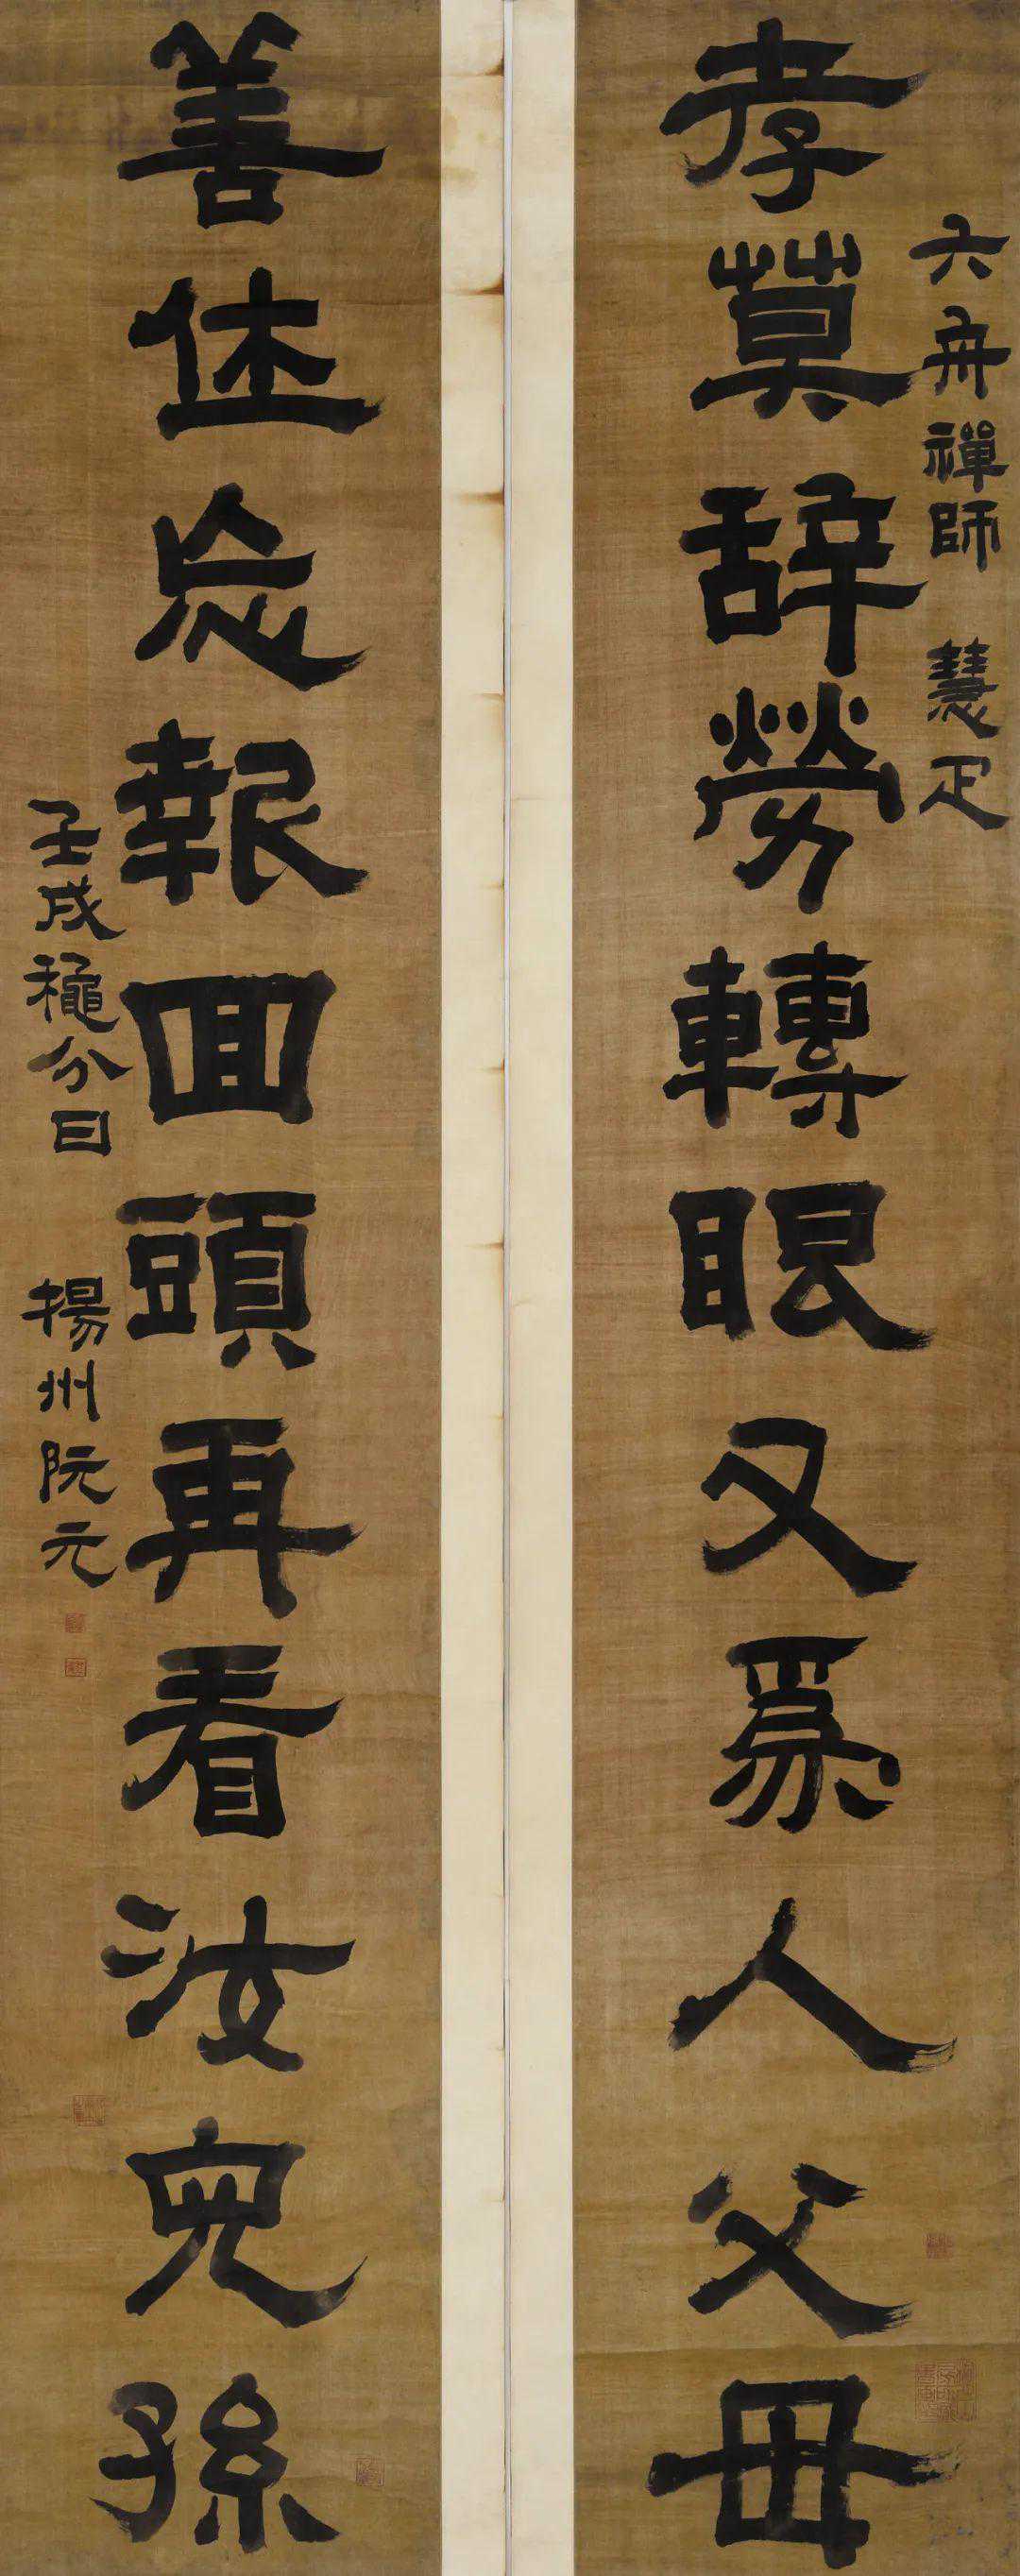 六舟禪師 慧疋
孝莫辞勞轉眼又爲人父母
善休忘報回頭再看汝兒孫
壬戌穐分日 揚州阮元